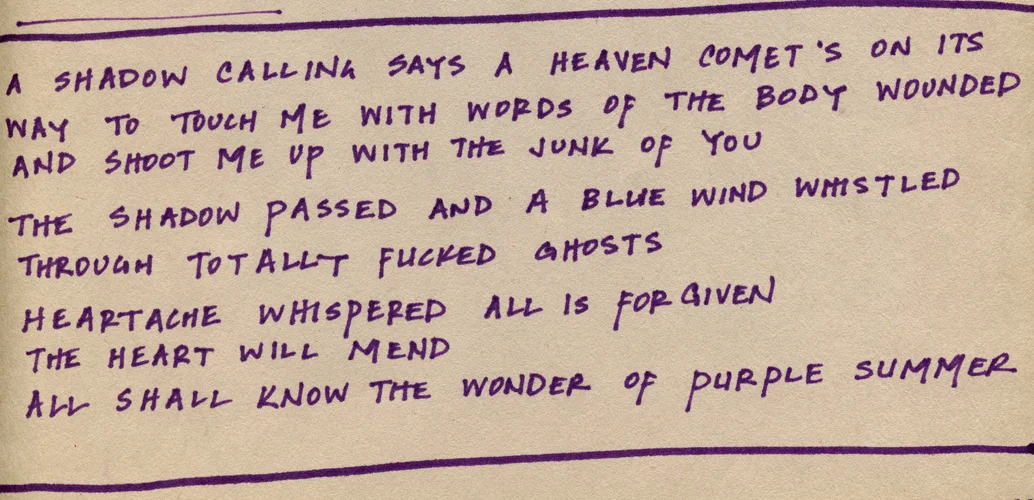 A SHADOW CALLING SAYS A HEAVEN COMET'S ON ITS
WAY TO TOUCH ME WITH WORDS OF THE BODY WOUNDED
AND SHOOT ME UP WITH THE JUNK OF YOU
THE SHADOW PASSED AND A BLUE WIND WHISTLED
THROUGH TOTALLY FUCKED GHOSTS
HEARTACHE WHISPERED ALL IS FORGIVEN
THE HEART WILL MEND
ALL SHALL KNOW THE WONDER OF PURPLE SUMMER